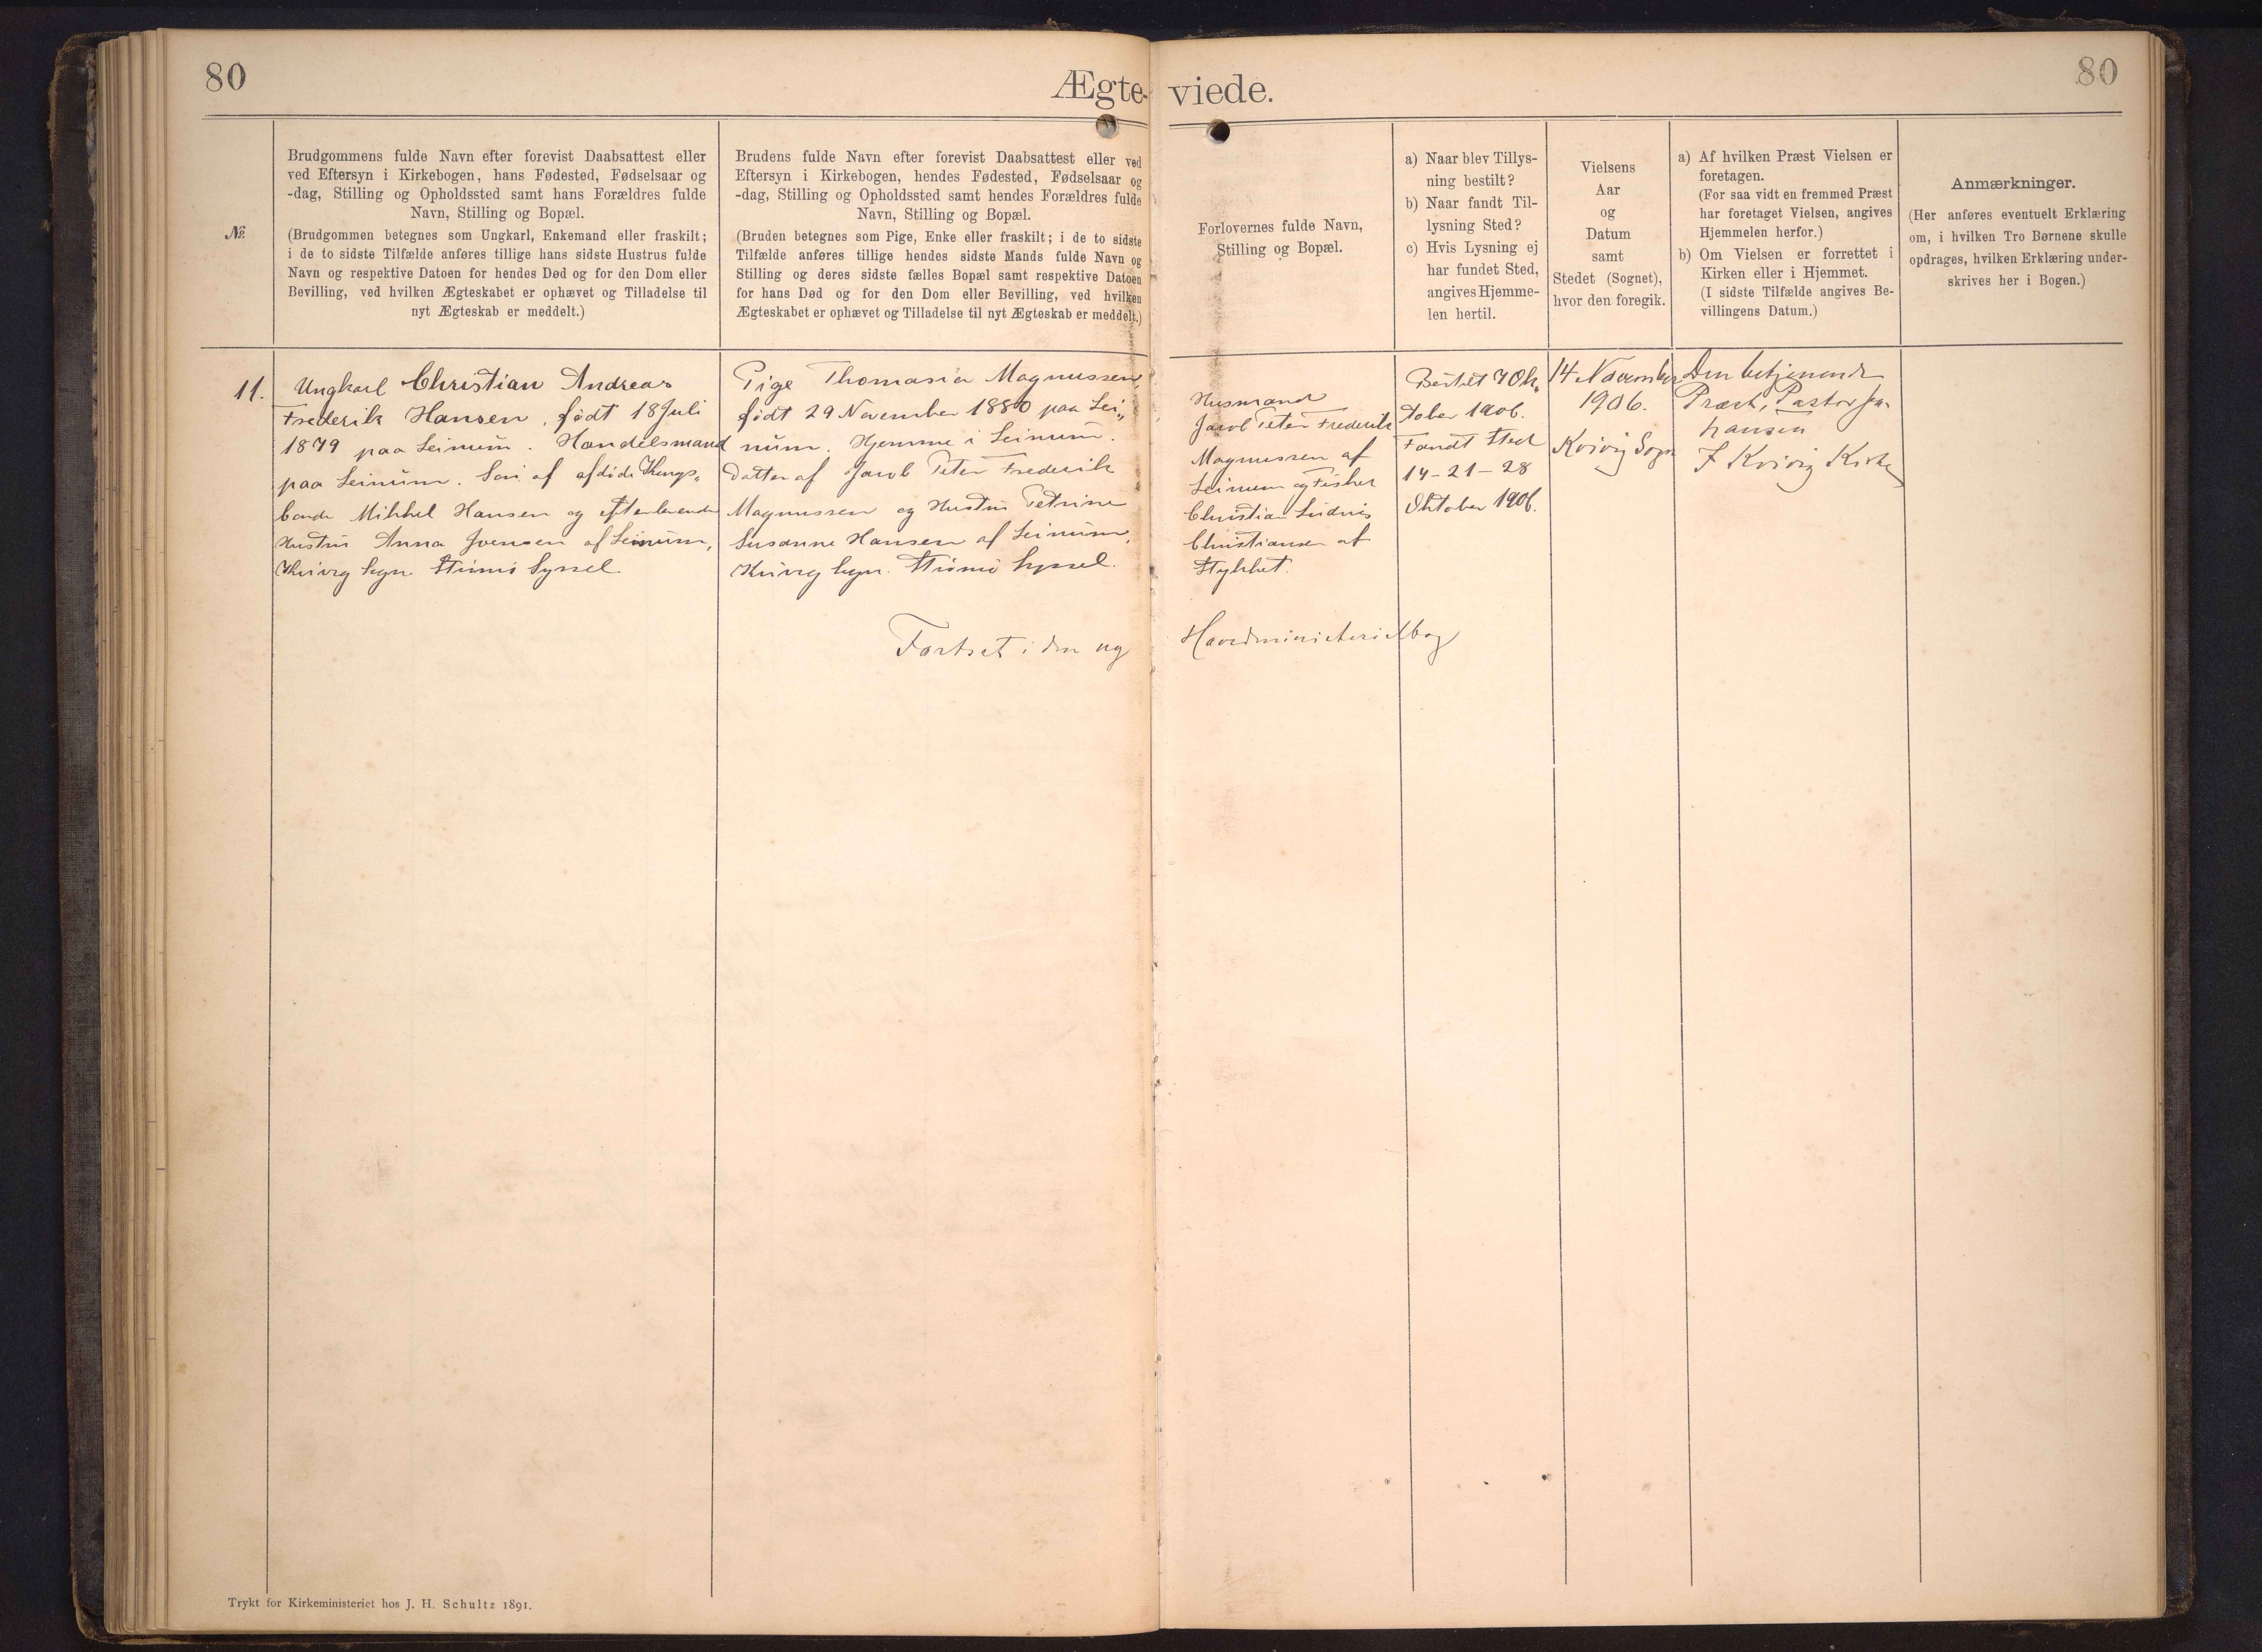 80
Ægte-viede.
80
№.
Brudgommens fulde Navn efter forevist Daabsattest eller
ved Eftersyn i Kirkebogen, hans Fødested, Fødselsaar og
-dag, Stilling og Opholdssted samt hans Forældres fulde
Navn, Stilling og Bopæl.
(Brudgommen betegnes som Ungkarl, Enkemand eller fraskilt;
i de to sidste Tilfælde anføres tillige hans sidste Hustrus fulde
Navn og respektive Datoen for hendes Død og for den Dom eller
Bevilling, ved hvilken Ægteskabet er ophævet og Tilladelse til
nyt Ægteskab er meddelt.)
Brudens fulde Navn efter forevist Daabsattest eller ved
Eftersyn i Kirkebogen, hendes Fødested, Fødselsaar og
-dag, Stilling og Opholdssted samt hendes Forældres fulde
Navn, Stilling og Bopæl.
(Bruden betegnes som Pige, Enke eller fraskilt; i de to sidste
Tilfælde anføres tillige hendes sidste Mands fulde Navn og
Stilling og deres sidste fælles Bopæl samt respektive Datoen
for hans Død og for den Dom eller Bevilling, ved hvilken
Ægteskabet er ophævet og Tilladelse til nyt Ægteskab er meddelt.)
Forlovernes fulde Navn,
Stilling og Bopæl.
a) Naar blev Tillys-
ning bestilt?
b) Naar fandt Til-
lysning Sted?
c) Hvis Lysning ej
har fundet Sted,
angives Hjemme-
len hertil.
Vielsens
Aar
og
Datum
samt
Stedet (Sognet),
hvor den foregik.
a) Af hvilken Præst Vielsen er
foretagen.
(For saa vidt en fremmed Præst
har foretaget Vielsen, angives
Hjemmelen herfor.)
b) Om Vielsen er forrettet i
Kirken eller i Hjemmet.
(I sidste Tilfælde angives Be-
villingens Datum.)
Anmærkninger.
(Her anføres eventuelt Erklæring
om, i hvilken Tro Børnene skulle
opdrages, hvilken Erklæring under-
skrives her i Bogen.)
11.
Ungkarl Christian Andreas
Frederik Hansen, født 18 Juli
1879 paa Leinum. Handelsmand
paa Leinum. Søn af afdøde Kongs„
bonde Mikkel Hansen og efterlevende
Hustru Anna Joensen af Leinum,
Kvivig Sogn Strømø Syssel
Pige Thomasia Magnussen,
født 29 November 1880 paa Lei„
num. Hjemme i Leinum.
Datter af Jacob Peter Frederik
Magnussen og Hustru Petrine
Susanne Hansen af Leinum,
Kvivig Sogn. Strømø Syssel.
Husmand
Jacob Peter Frederik
Magnussen af
Leinum og Fisker
Christian Ludvig
Christiansen af
Stykket.
Bestilt 7 Ok„
tober 1906.
Fandt Sted
14-21-28
Oktober 1906.
14 November
1906.
Kvivig Sogn
Den betjenende
Præst, Pastor Jo-
hansen
I Kvivig Kirke
Fortset i den ny Hovedministerialbog
Trykt for Kirkeministeriet hos J. H. Schultz 1891.